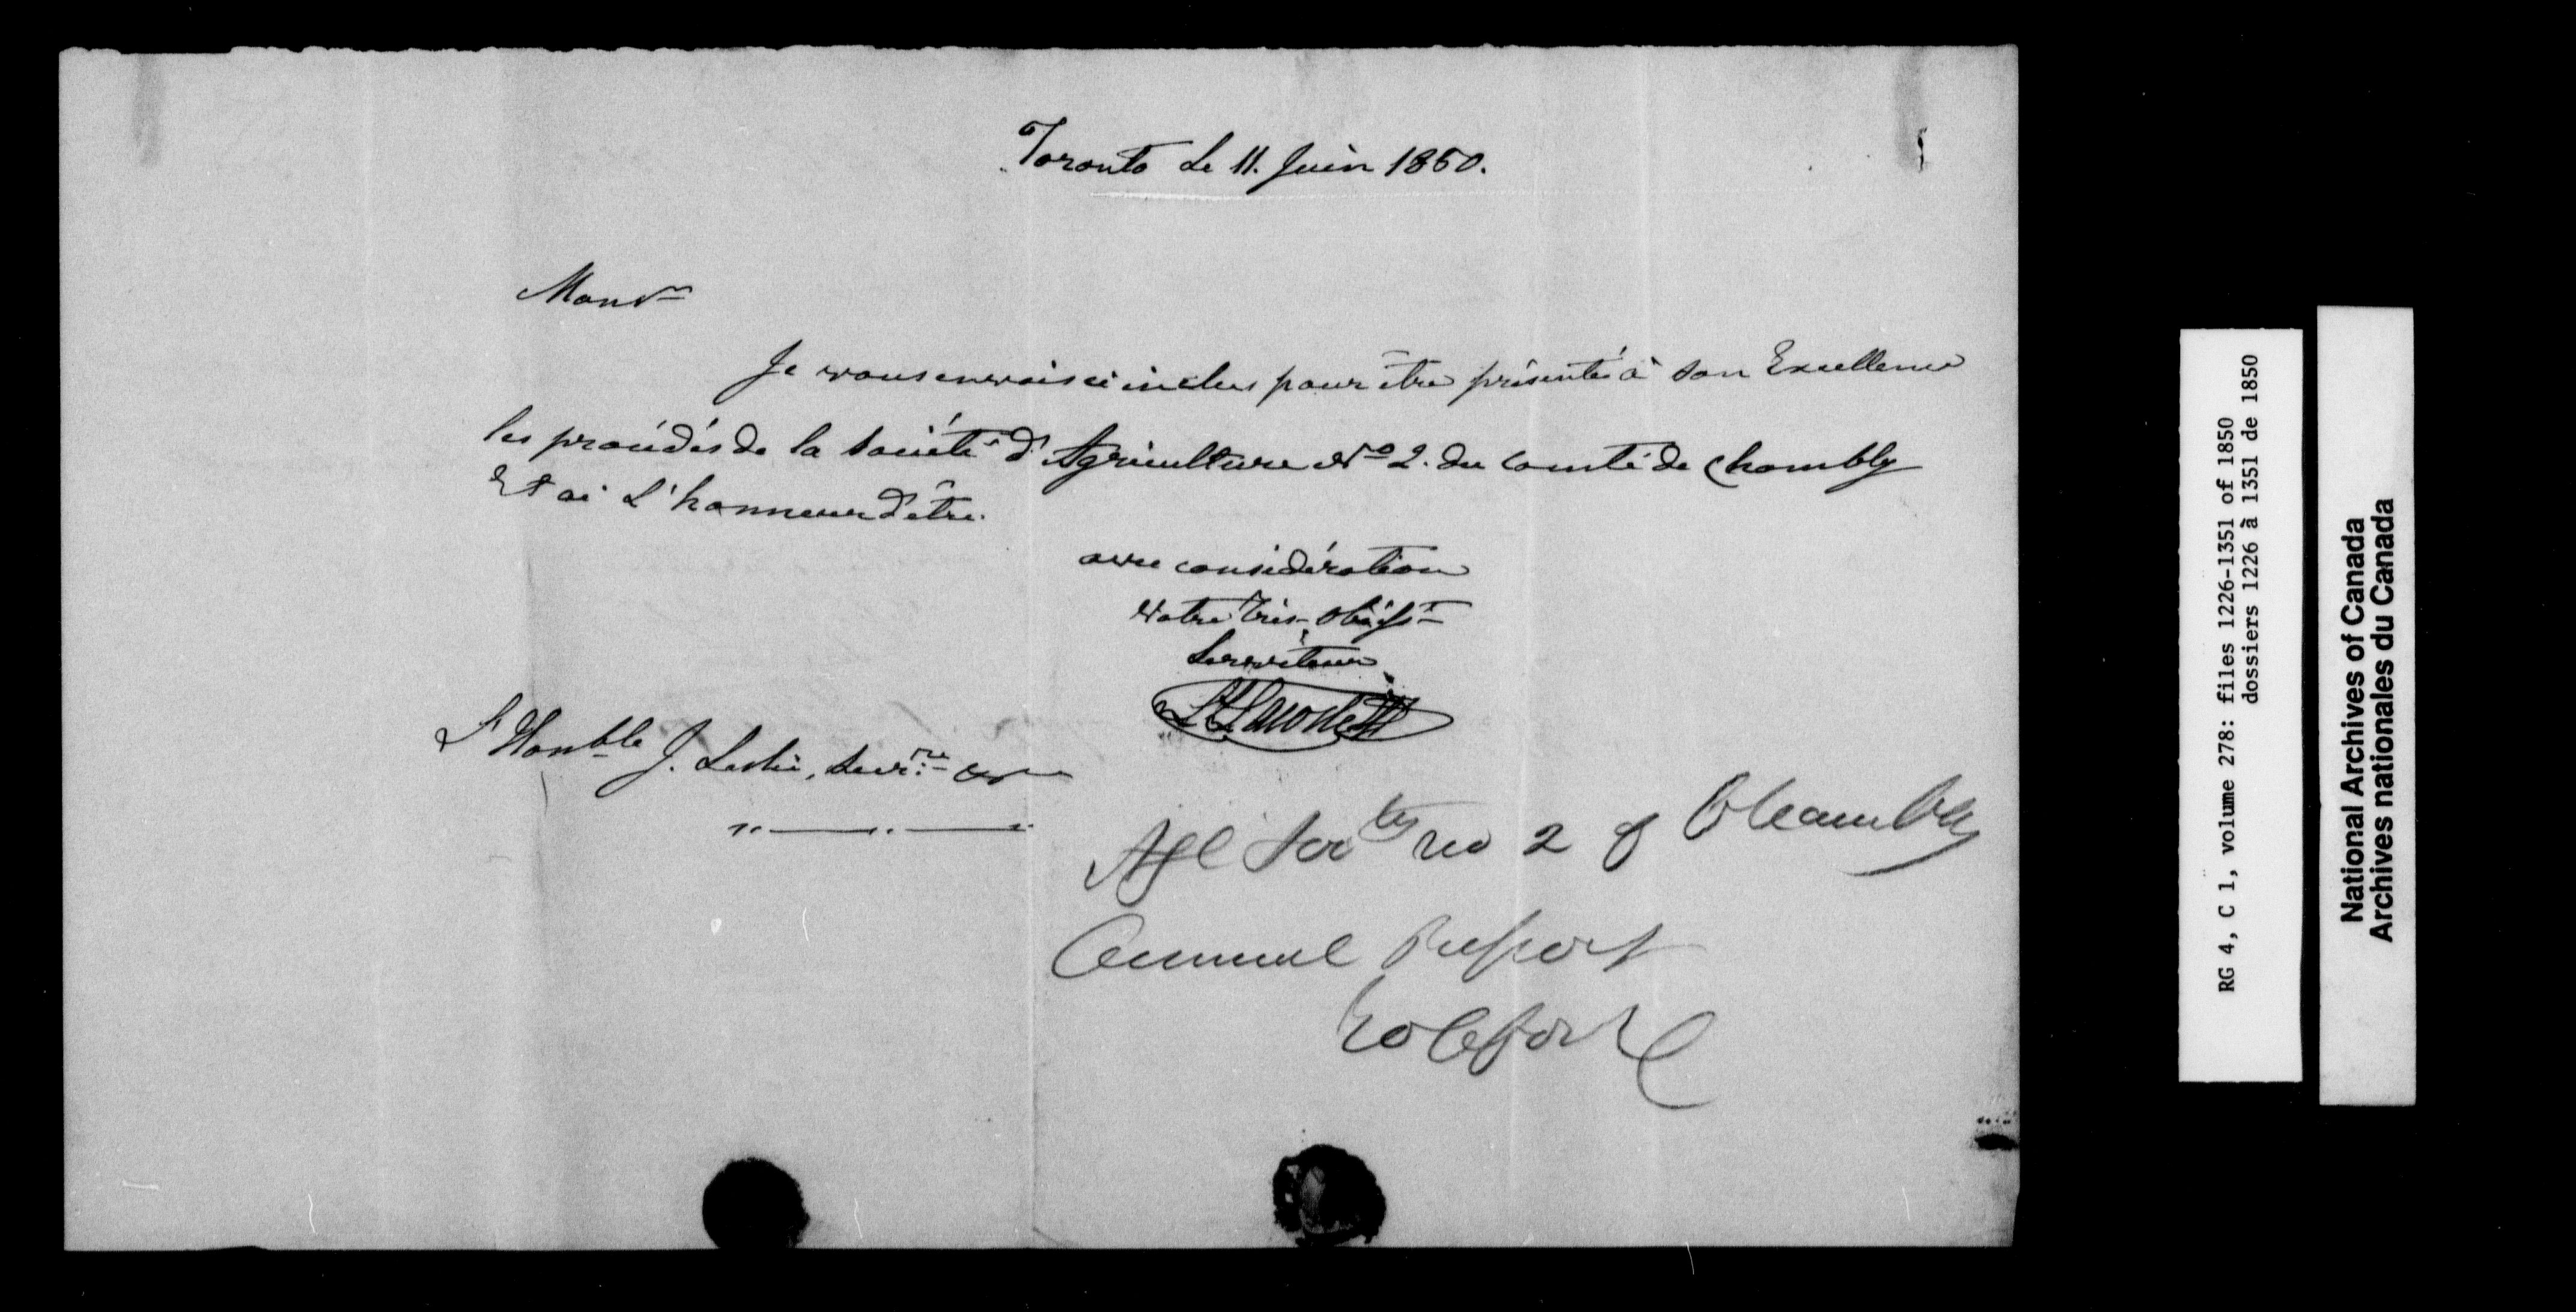 Toronto le 11. Juin 1850.
Monsr
Je vous envois ci inclus pour être présenté à son Excellence
les procédés de la Société d'Agriculture No 2. du comté de Chambly
Et ai L'honneur d'être.
avec considération
Votre très-obéisst
Serviteur
L Lacoste
L'Honble J. Leslie, Secrre &c
Agl Socty no 2 of Chambly
Annual Report
RG 4, C 1, volume 278: files 1226-1351 of 1850
dossiers 1226 à 1351 de 1850
National Archives of Canada
Archives nationales du Canada